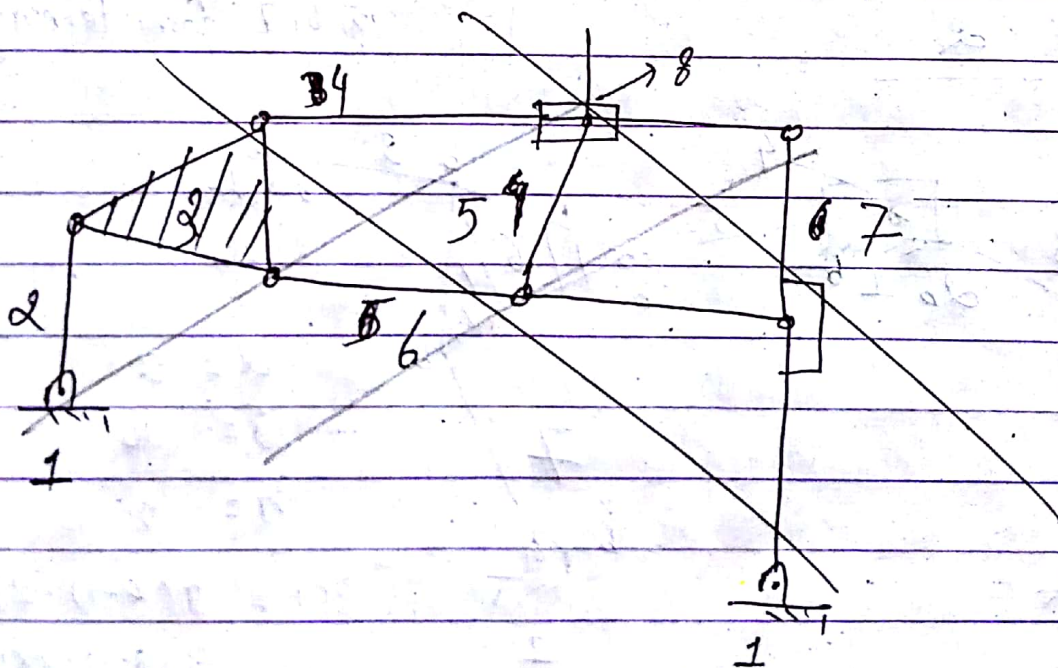 4
8
3
5
7
2
6
1
1